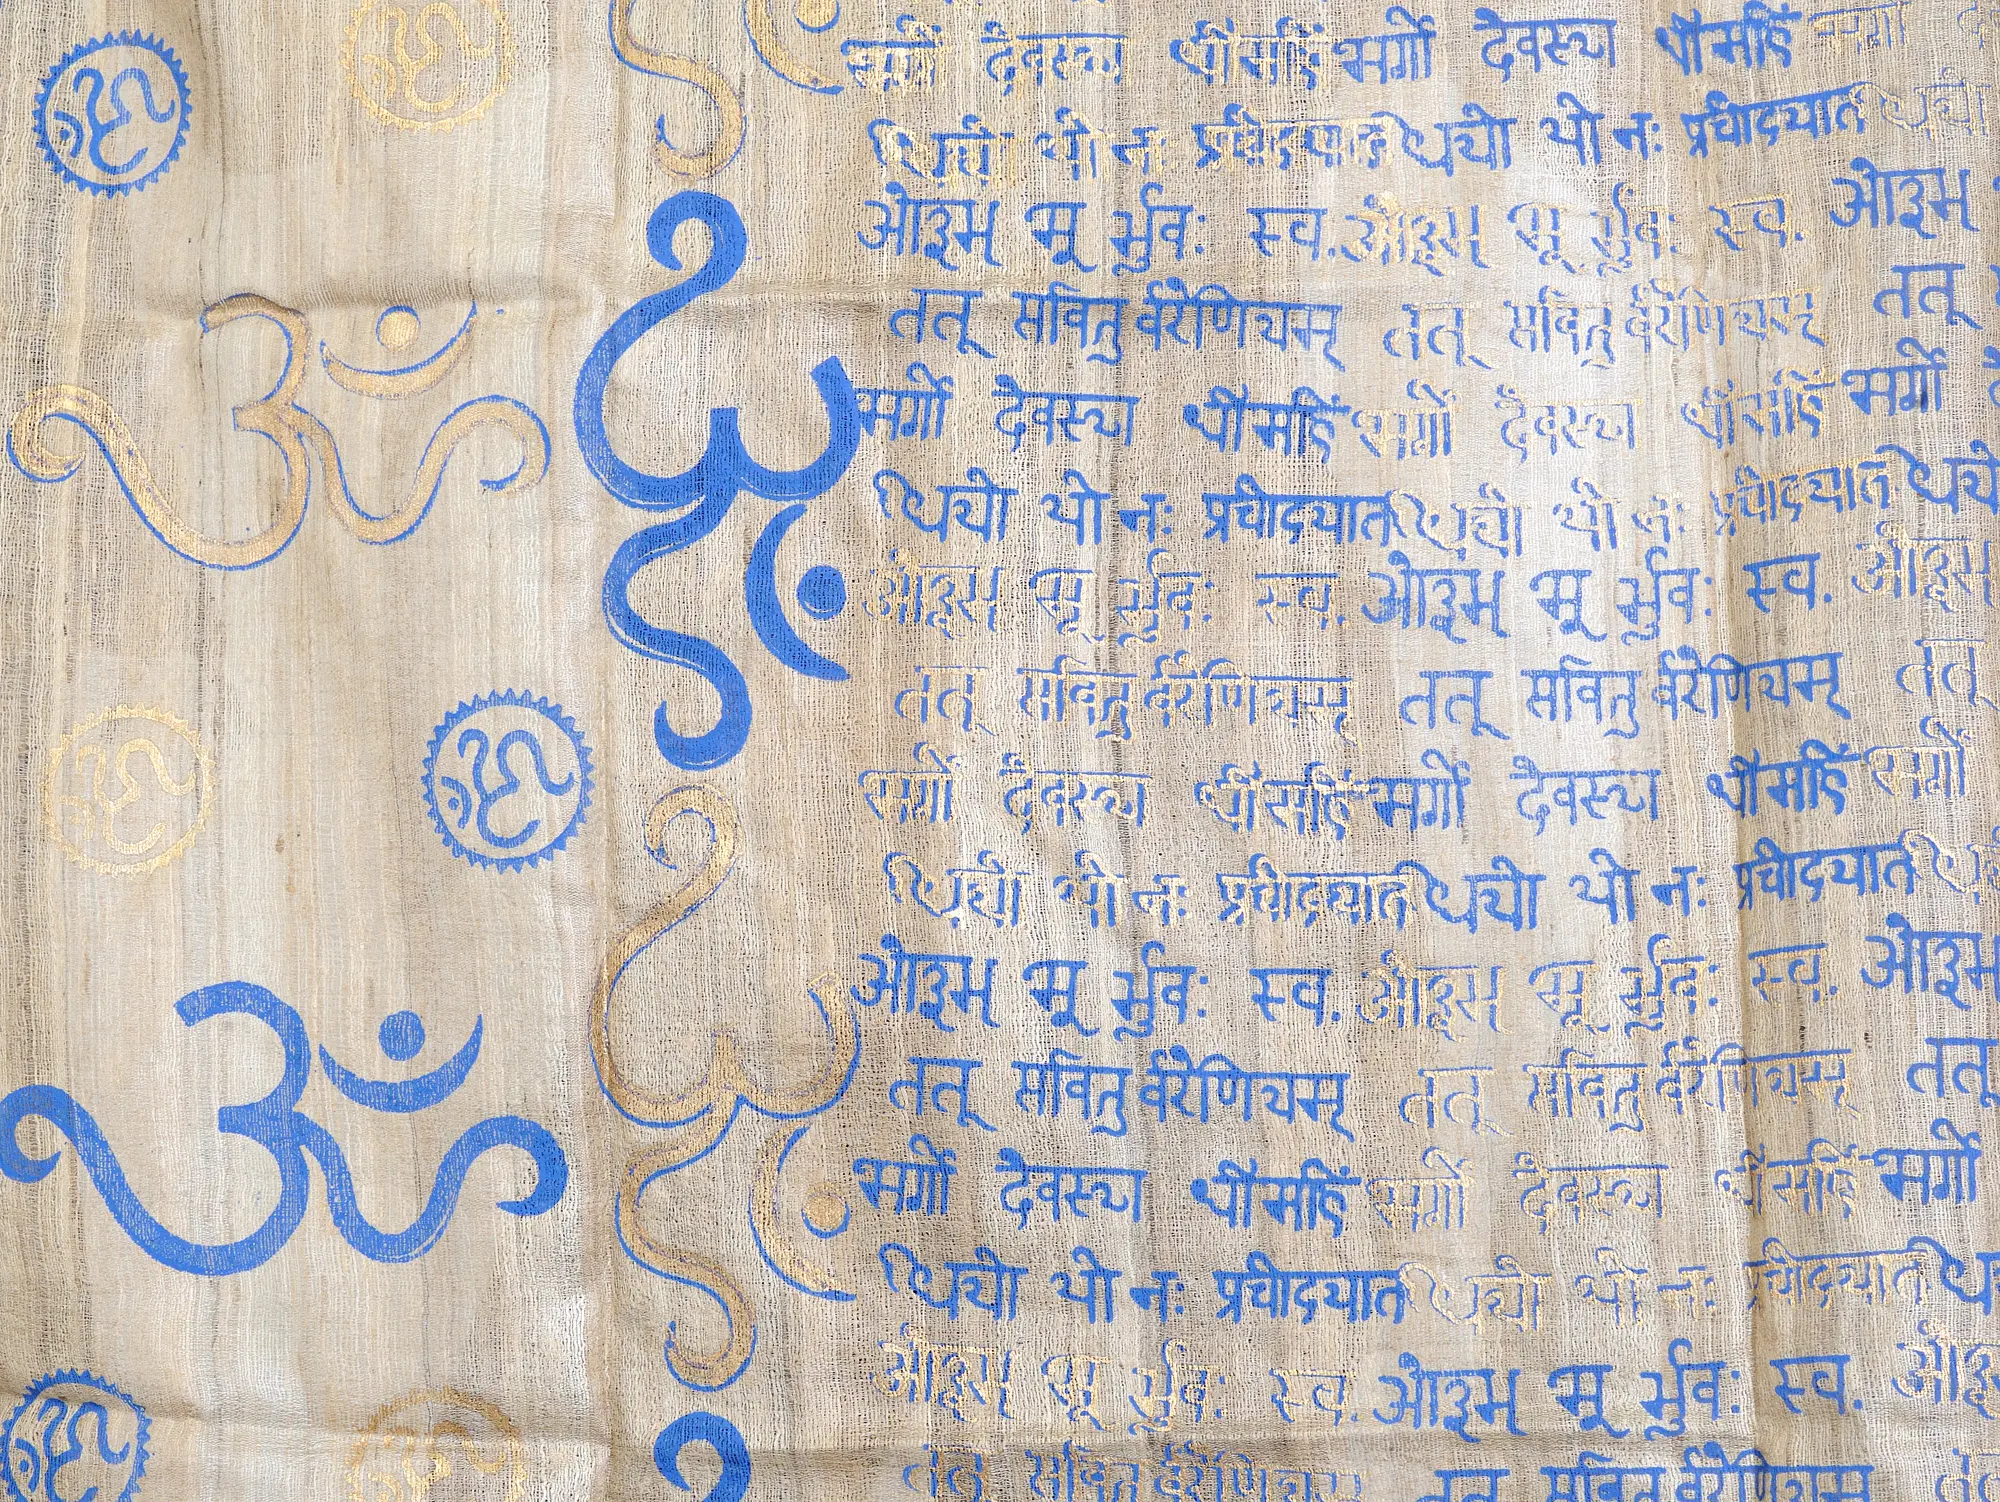 भर्गो देवस्य धीमहि भर्गो देवस्य धीमहि भर्गो
धियो यो नः प्रचोदयात धियो यो नः प्रचोदयात धियो
ओ३म् भू र्भुवः स्व. ओ३म् भू र्भुवः स्व. ओ३म्
तत् सवितु र्वरेणियम् तत् सवितु र्वरेणियम् तत्
भर्गो देवस्य धीमहि भर्गो देवस्य धीमहि भर्गो
धियो यो नः प्रचोदयात धियो यो नः प्रचोदयात धियो
ओ३म् भू र्भुवः स्व. ओ३म् भू र्भुवः स्व. ओ३म्
तत् सवितु र्वरेणियम् तत् सवितु र्वरेणियम् तत्
भर्गो देवस्य धीमहि भर्गो देवस्य धीमहि भर्गो
धियो यो नः प्रचोदयात धियो यो नः प्रचोदयात
ओ३म् भू र्भुवः स्व. ओ३म् भू र्भुवः स्व. ओ३म्
तत् सवितु र्वरेणियम् तत् सवितु र्वरेणियम् तत्
भर्गो देवस्य धीमहि भर्गो देवस्य धीमहि भर्गो
धियो यो नः प्रचोदयात धियो यो नः प्रचोदयात
ओ३म् भू र्भुवः स्व. ओ३म् भू र्भुवः स्व.
तत् सवितु र्वरेणियम् तत् सवितु र्वरेणियम्